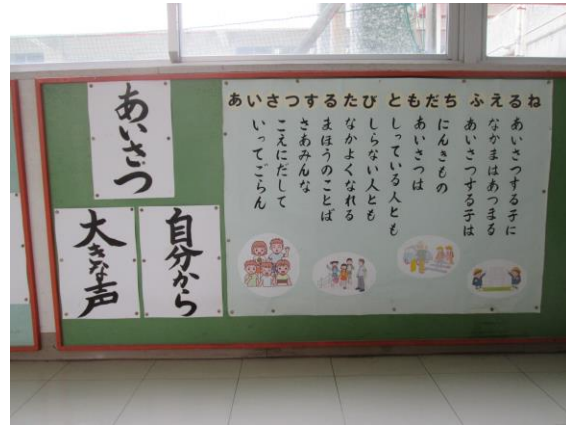 あいさつ
自分から
大きな声
あいさつするたび ともだち ふえるね
あいさつする子に
なかまはあつまる
あいさつする子は
にんきもの
あいさつは
しっている人とも
しらない人とも
なかよくなれる
まほうのことば
さあみんな
こえにだして
いってごらん